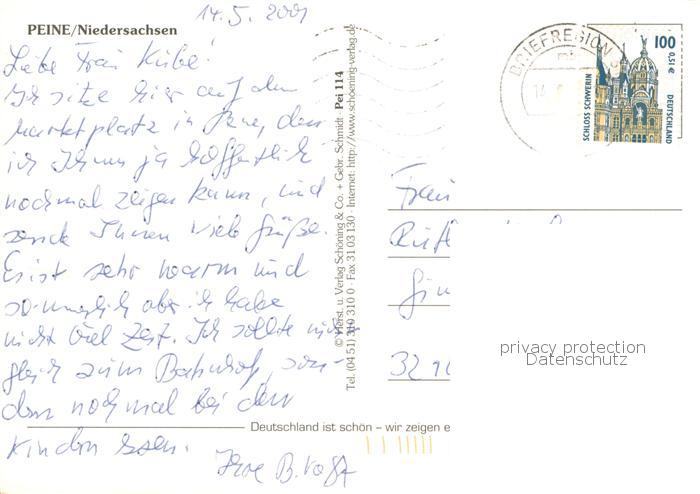 14.5.2001
PEINE/Niedersachsen
Liebe Frau Kube!
Ich sitze hier auf dem
Marktplatz in Peine, den
ich Ihnen ja hoffentlich
nochmal zeigen kann, und
sende Ihnen viele Grüße.
Es ist sehr warm und
sommerlich aber ich habe
nicht viel Zeit. Ich sollte
gleich zum Bahnhof, son-
dern nochmal bei den
Kindern essen.
Ihre B.
© Verst. u. Verlag Schöning & Co. + Gebr. Schmidt · Pei 114
Tel. (04 51) 310 310 0 · Fax 31 03 130 · Internet: http://www.schoening-verlag.de
Deutschland ist schön – wir zeigen e
BRIEFREGION
100
0,51 €
SCHLOSS SCHWERIN
DEUTSCHLAND
Frau
32
privacy protection
Datenschutz